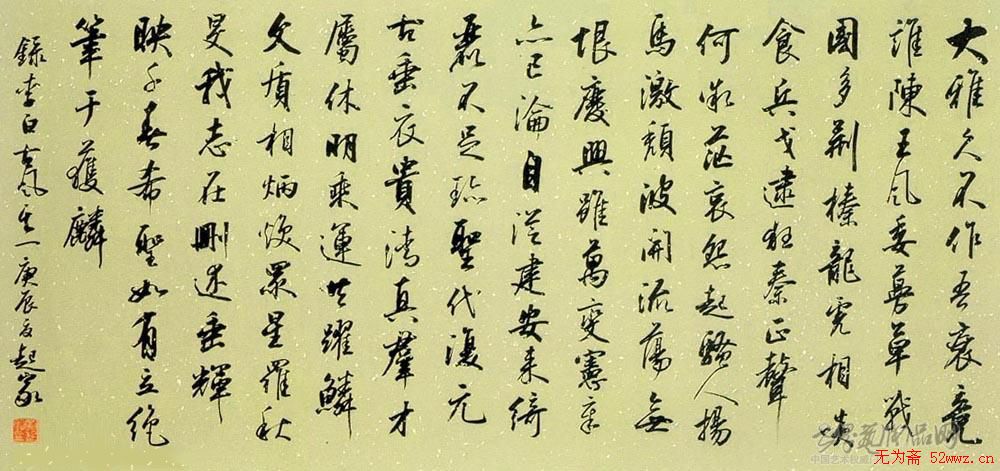 大雅久不作吾衰竟
誰陳王風委蔓草戰
國多荊榛龍虎相啖
食兵戈逮狂秦正聲
何微茫哀怨起騷人揚
馬激頹波開流蕩無
垠廢興雖萬變憲章
亦已淪自從建安來綺
麗不足珍聖代復元
古垂衣貴清真羣才
屬休明乘運共躍鱗
文質相炳煥眾星羅秋
旻我志在刪述垂輝
映千春希聖如有立絕
筆于獲麟
錄李白古風其一庚辰夏起
中国艺术权威
无为斋 52wwz.cn